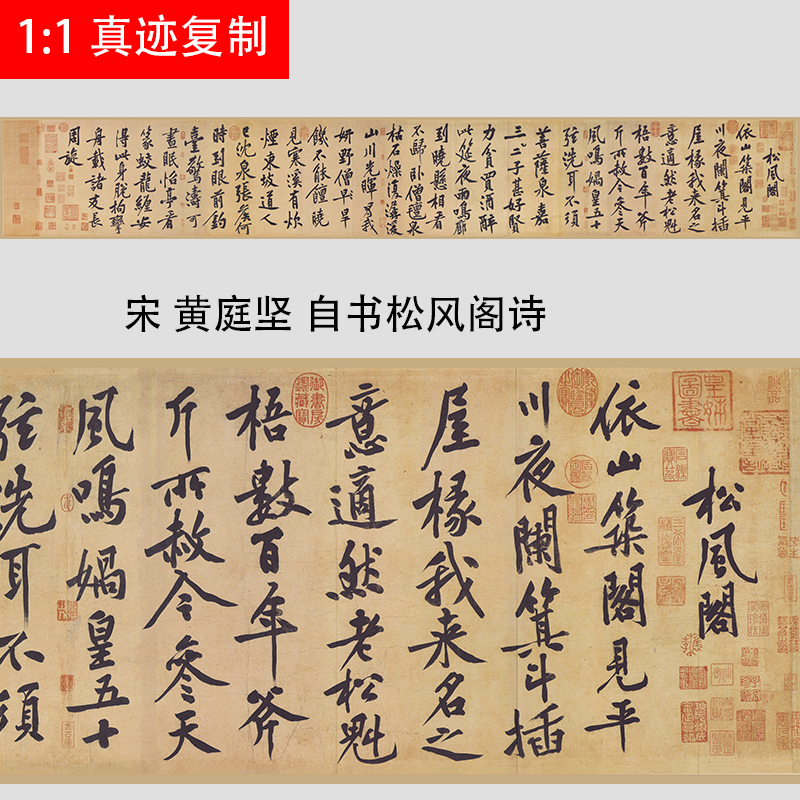 1:1 真迹复制
松風閣
依山築閣見平
川夜闌箕斗插
屋椽我来名之
意適然老松魁
梧數百年斧
斤所赦今參天
風鳴媧皇五十
弦洗耳不須
菩薩泉嘉
三二子甚好賢
力貧買酒醉
此筵夜雨鳴廊
到曉懸相看
不歸卧僧氈泉
枯石燥復潺湲
山川光暉為我
妍野僧早旱
飢不能饘曉
見寒溪有炊
煙東坡道人
已沈泉張侯何
時到眼前釣
臺驚濤可
晝眠怡亭看
篆蛟龍纏安
得此身脫拘攣
舟載諸友長
周旋
宋 黄庭坚 自书松风阁诗
松風閣
依山築閣見平
川夜闌箕斗插
屋椽我来名之
意適然老松魁
梧數百年斧
斤所赦今參天
風鳴媧皇五十
弦洗耳不須
皇姊圖書
御書房鑑藏寶